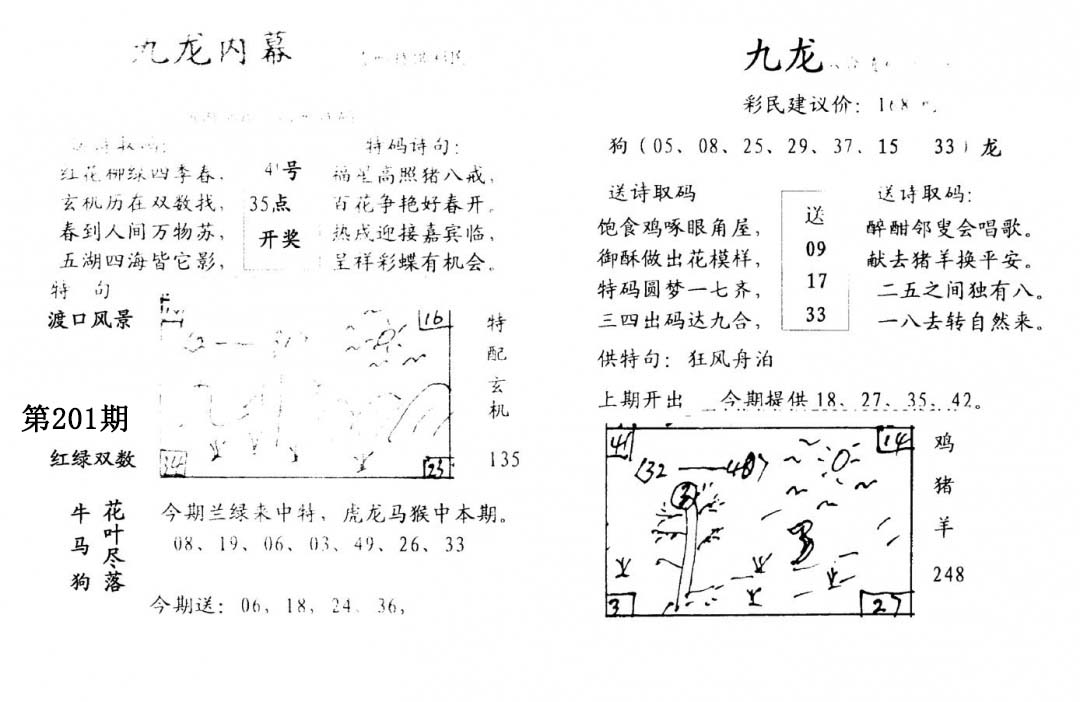 九龙内幕
特码诗句：
红花柳绿四季春，
玄机历在双数找，
春到人间万物苏，
五湖四海皆它影，
号
35点
开奖
福星高照猪八戒，
百花争艳好春开。
热戍迎接嘉宾临，
呈祥彩蝶有机会。
特 句
渡口风景
第201期
红绿双数
16
34
23
特配玄机
135
牛马狗
花叶尽落
今期兰绿来中特，虎龙马猴中本期。
08、19、06、03、49、26、33
今期送：06，18，24、36，
九龙
彩民建议价：168
狗（05、08、25、29、37、15 33）龙
送诗取码
饱食鸡啄眼角屋，
御酥做出花模样，
特码圆梦一七齐，
三四出码达九合，
送
09
17
33
送诗取码：
醉酣邻叟会唱歌。
献去猪羊换平安。
二五之间独有八。
一八去转自然来。
供特句：狂风舟泊
上期开出 今期提供18、27、35、42。
41
14
3
27
鸡
猪
羊
248